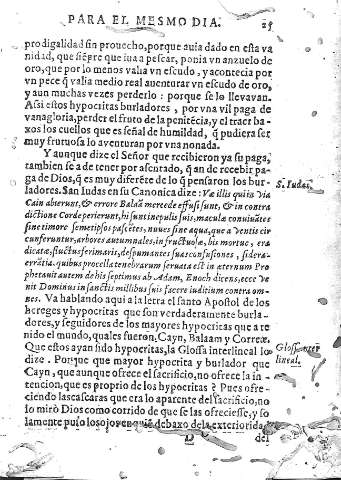 PARA EL MESMO DIA. 25
prodigalidad sin prouecho, porque auia dado en esta va
nidad, que siẽpre que iua a pescar, ponia vn anzuelo de
oro, que por lo menos valia vn escudo, y acontecia por
vn pece q̃ valia medio real auenturar vn escudo de oro,
y aun muchas vezes perderlo: porque se lo lleuauan.
Assi estos hypocritas burladores, por vna vil paga de
vanagloria, perder el fruto de la penitẽcia, y el traer ba-
xos los cuellos que es señal de humildad, q̃ pudiera ser
muy frutuosa lo auenturan por vna nonada.
Y aunque dize el Señor que recibieron ya su paga,
tambien se a de tener por assentado, q̃ an de recebir pa-
ga de Dios, q̃ es muy diferẽte de lo q̃ pensaron los bur-
ladores. San Iudas en su Canonica dize: Væ illis quia in via
Cain abierunt, & errore Balaã mercede effusi sunt, & in contra
dictione Core perierunt, hi sunt in epulis suis, maculæ conuiuãtes
sine timore semetipsos pascẽtes, nuues sine aqua, quæ a ventis cir
cunferuntur, arbores autumnales, infructuosæ, bis mortuæ, era
dicatæ, fluctus feri maris, despumantes suas confusiones, sidera
errãtia. quibus procella tenebrarum seruata est in æternum Pro
phetauit autem de his septimus ab Adam, Enoch dicens, ecce ve
nit Dominus in sanctis millibus suis facere iuditium contra om-
nes. Va hablando aqui a la letra el santo Apostol de los
hereges y hypocritas que son verdaderamente burla-
dores, y seguidores de los mayores hypocritas que a te
nido el mundo, quales fueron, Cayn, Balaam y Corree.
Que estos ayan sido hypocritas, la Glossa interlineal lo
dize. Porque que mayor hypocrita y burlador que
Cayn, que aunque ofrece el sacrificio, no ofrece la in
tencion, que es proprio de los hypocritas? Pues ofre-
ciendo las cascaras que era lo aparente del sacrificio, no
lo miró Dios como corrido de que se las ofreciesse, y so
lamente puso los ojos en quiẽ debaxo de la exterioridad
D del
S. Iudas.
Gloss. inter
lineal.